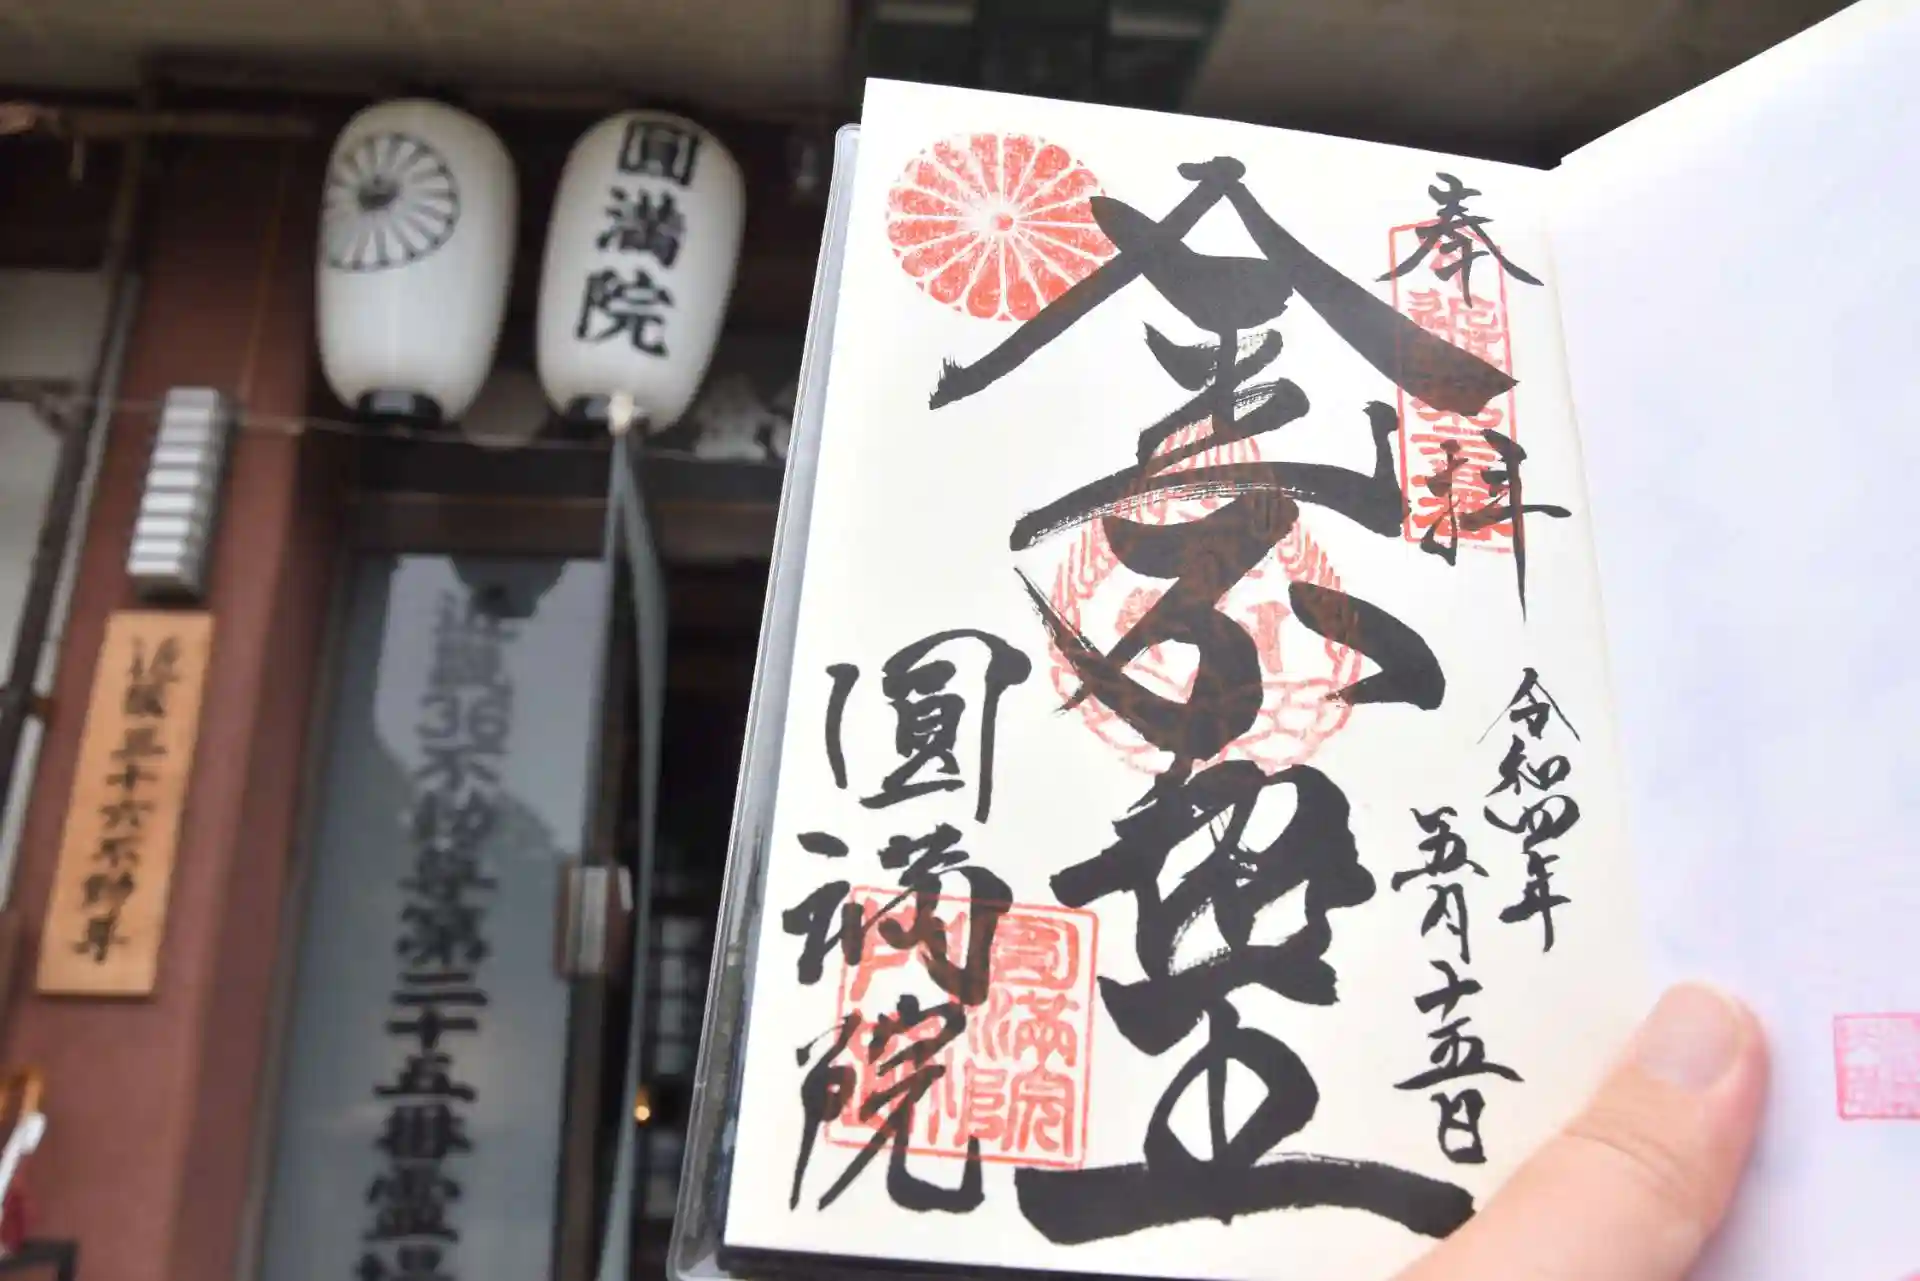 圓満院
近畿三十六不動尊
近畿36不動尊第二十五番霊場
奉拝
令和四年
五月十五日
金色不動尊
圓満院
圓満院